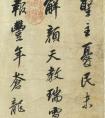 聖主憂民未
解顏天教瑞雪
報豐年蒼龍